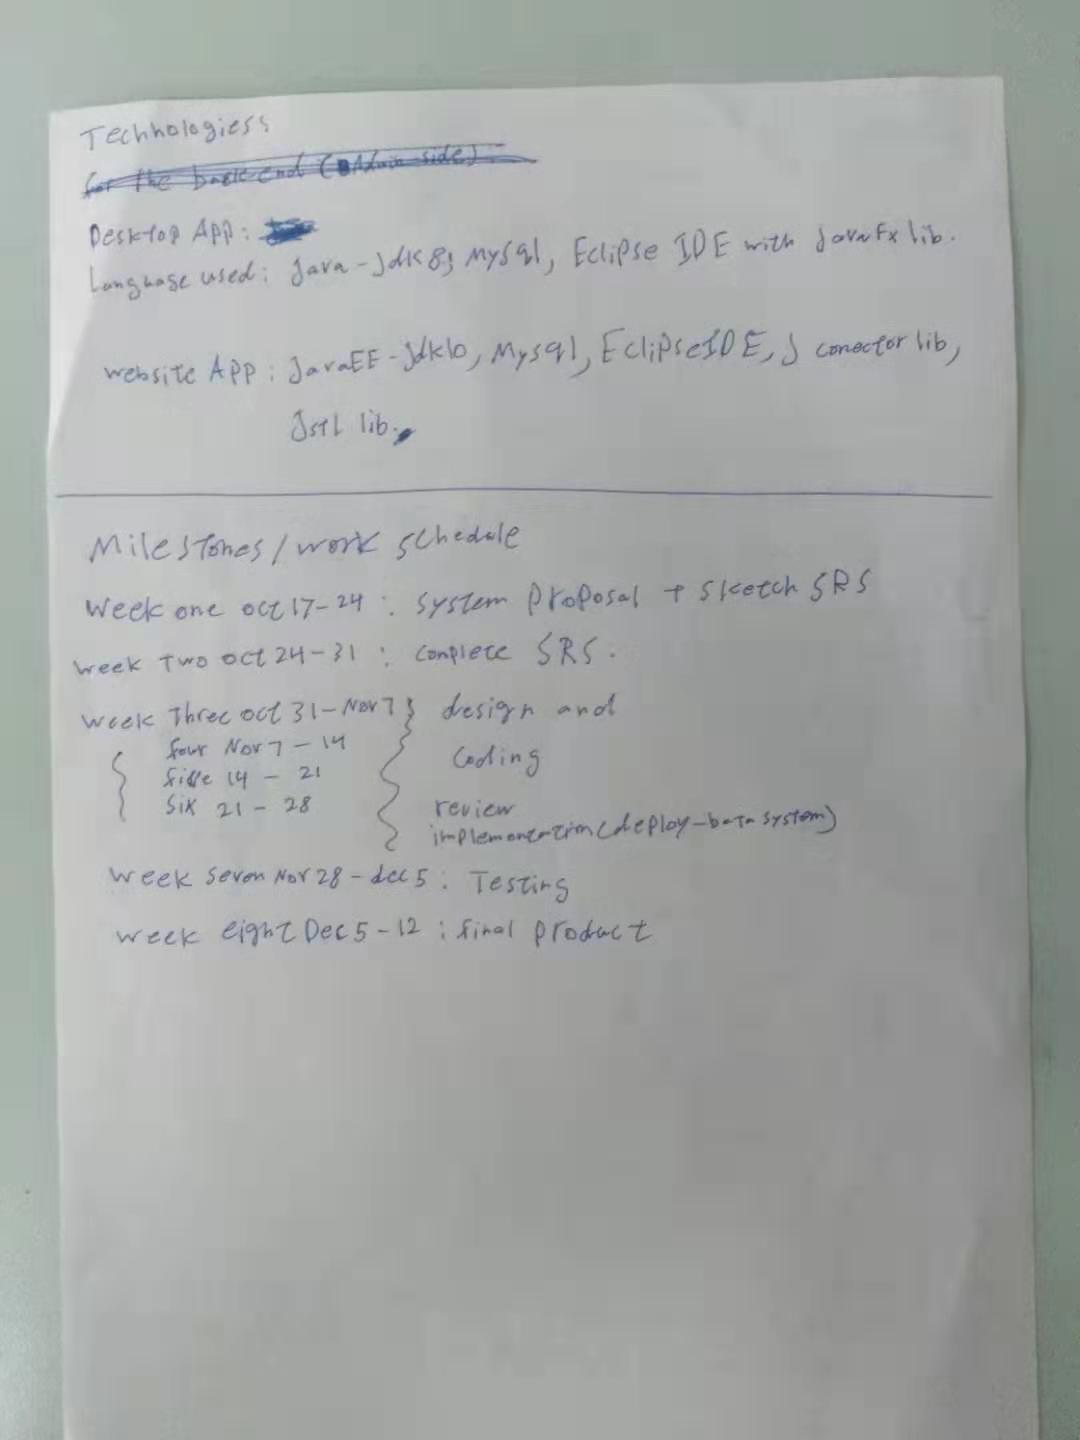 Technologiess
for the back end (Admin side)
Desktop App:
Language used: Java-Jdk8, MySql, Eclipse IDE with JavaFx lib.
Website App: JavaEE-Jdk10, Mysql, EclipseIDE, J conector lib,
Jstl lib.
Milestones/work schedule
Week one oct 17-24: system proposal + sketch SRS
Week Two oct 24-31: complete SRS.
Week Three oct 31-Nov 7 } design and
four Nov 7 - 14
coding
five 14 - 21
six 21 - 28
review
implementation (deploy-beta system)
Week seven Nov 28 - dec 5: Testing
Week eight Dec 5-12: final product